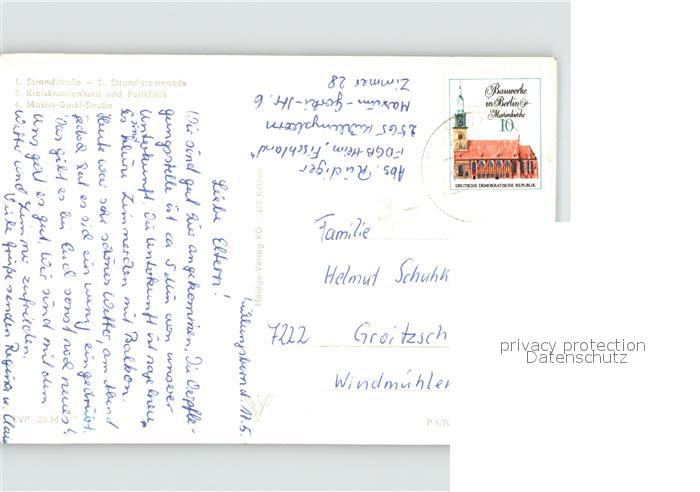 1. Strandstraße – 2. Strandpromenade
3. Kreiskrankenhaus und Poliklinik
4. Maxim-Gorki-Straße
Abs. Rüdiger
FDGB-Heim "Fischland"
2565 Kühlungsborn
Maxim-Gorki-Str. 6
Zimmer 28
Bauwerke
in Berlin
Marienkirche
10
DEUTSCHE DEMOKRATISCHE REPUBLIK
Kühlungsborn d. 17.5.
Liebe Eltern!
Wir sind gut hier angekommen. Die Verpfle-
gungsstelle ist ca 5 Min von unserer
Unterkunft. Die Unterkunft ist nagelneu,
es sind kleine Zimmerchen mit Balkon.
Heute war sehr schönes Wetter, am Abend
jedoch hat es sich ein wenig eingetrübt.
Was gibt es bei Euch sonst noch neues?
Uns geht es gut. Wir sind mit dem
Wetter und Zimmer zufrieden.
Viele Grüße senden Regina u. Claus
Verlag KG
Familie
Helmut Schuhk
7222 Groitzsch
Windmühlen
3,-
P 1/70
privacy protection
Datenschutz